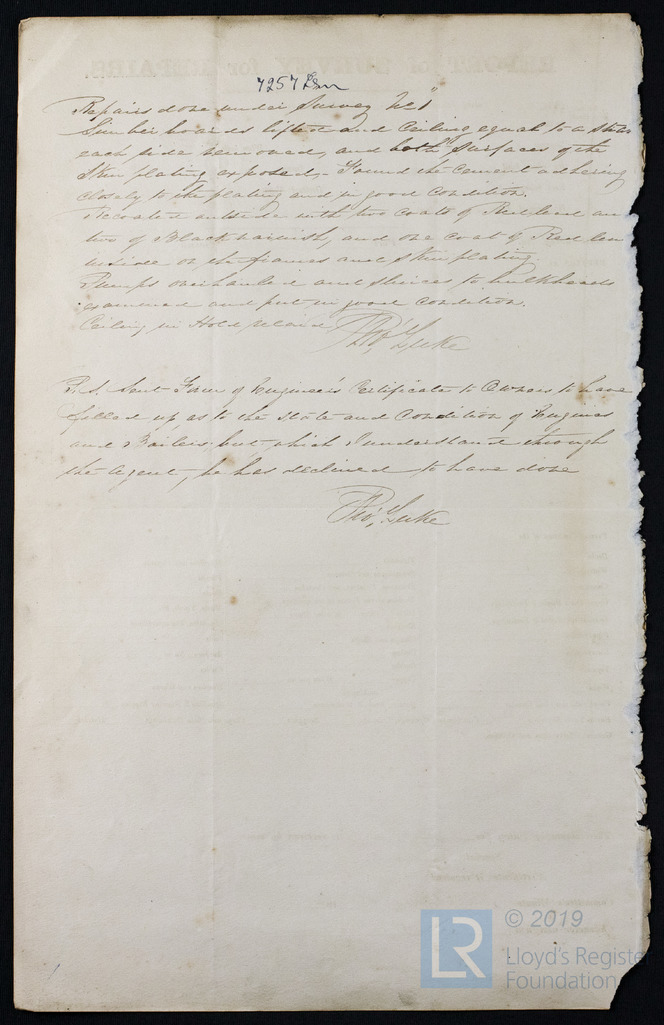 7257 Irn
Repairs done under Survey No 1
Limber boards lifted and Ceiling equal to a strake
each side removed, and both surfaces of the
Skin plating exposed - Found the cement adhering
closely to the plating and in good condition.
Recoated outside with two coats of Red lead and
two of Black varnish, and one coat of Red lead
inside on the frames and skin plating.
Pumps overhauled and sluices to bulkheads
examined and put in good condition.
Ceiling in Hold relaid
Tho.s Luke
P.S. Sent Form of Engineer's Certificate to Owners to have
filled up as to the state and Condition of Engines
and Boilers, but which I understand through
the Agent, he has declined to have done
Tho.s Luke
REPORT of SURVEY for REPAIRS.
LR
© 2019
Lloyd's Register
Foundation